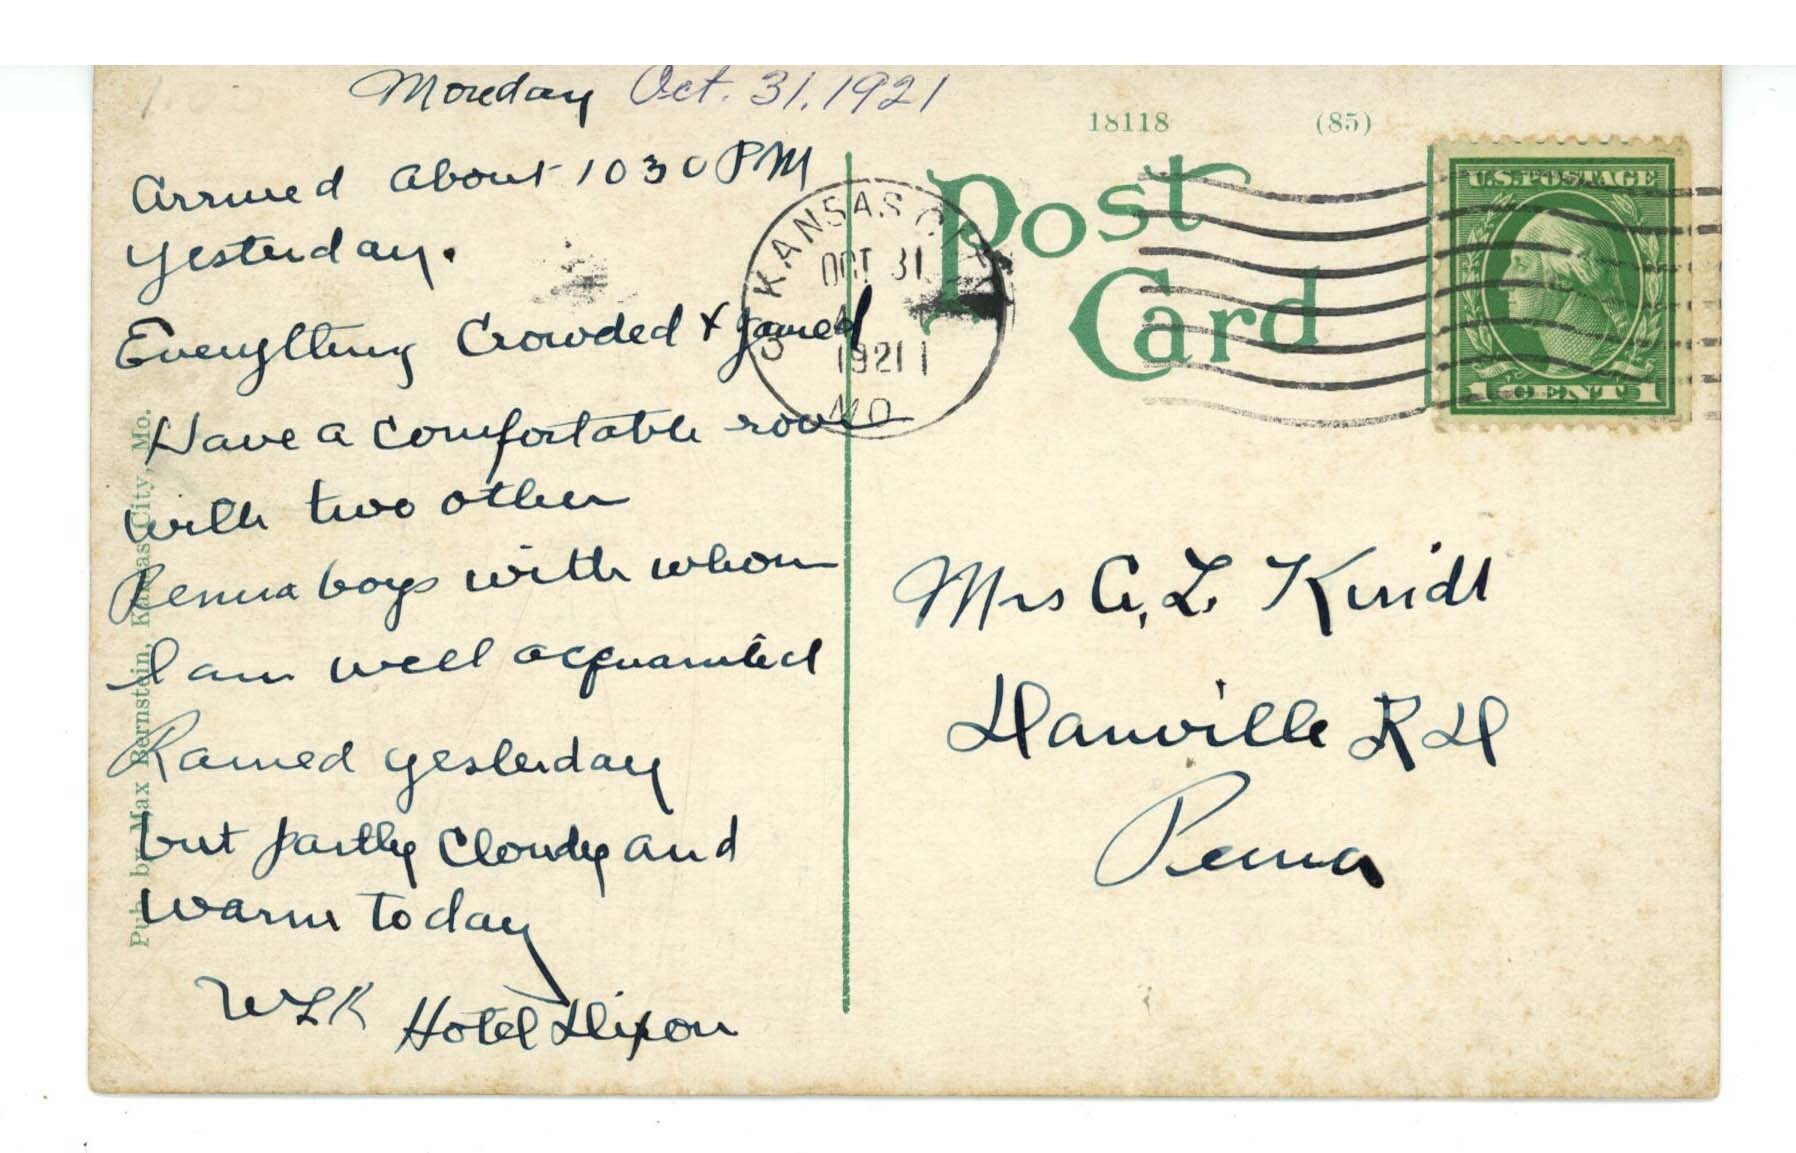 Monday Oct. 31, 1921
Arrived about 10 30 PM
yesterday.
Everything Crowded & jamed
Have a comfortable room
with two other
Penna boys with whom
I am well acquainted
Rained yesterday
but partly cloudy and
warm today
WLK Hotel Dixon
Pub. by Max Bernstein, Kansas City, Mo.
18118 (85)
Post
Card
KANSAS CITY
OCT 31
1921
MO.
U.S. POSTAGE
1 CENT 1
Mrs A. L.
Danville RD
Penna